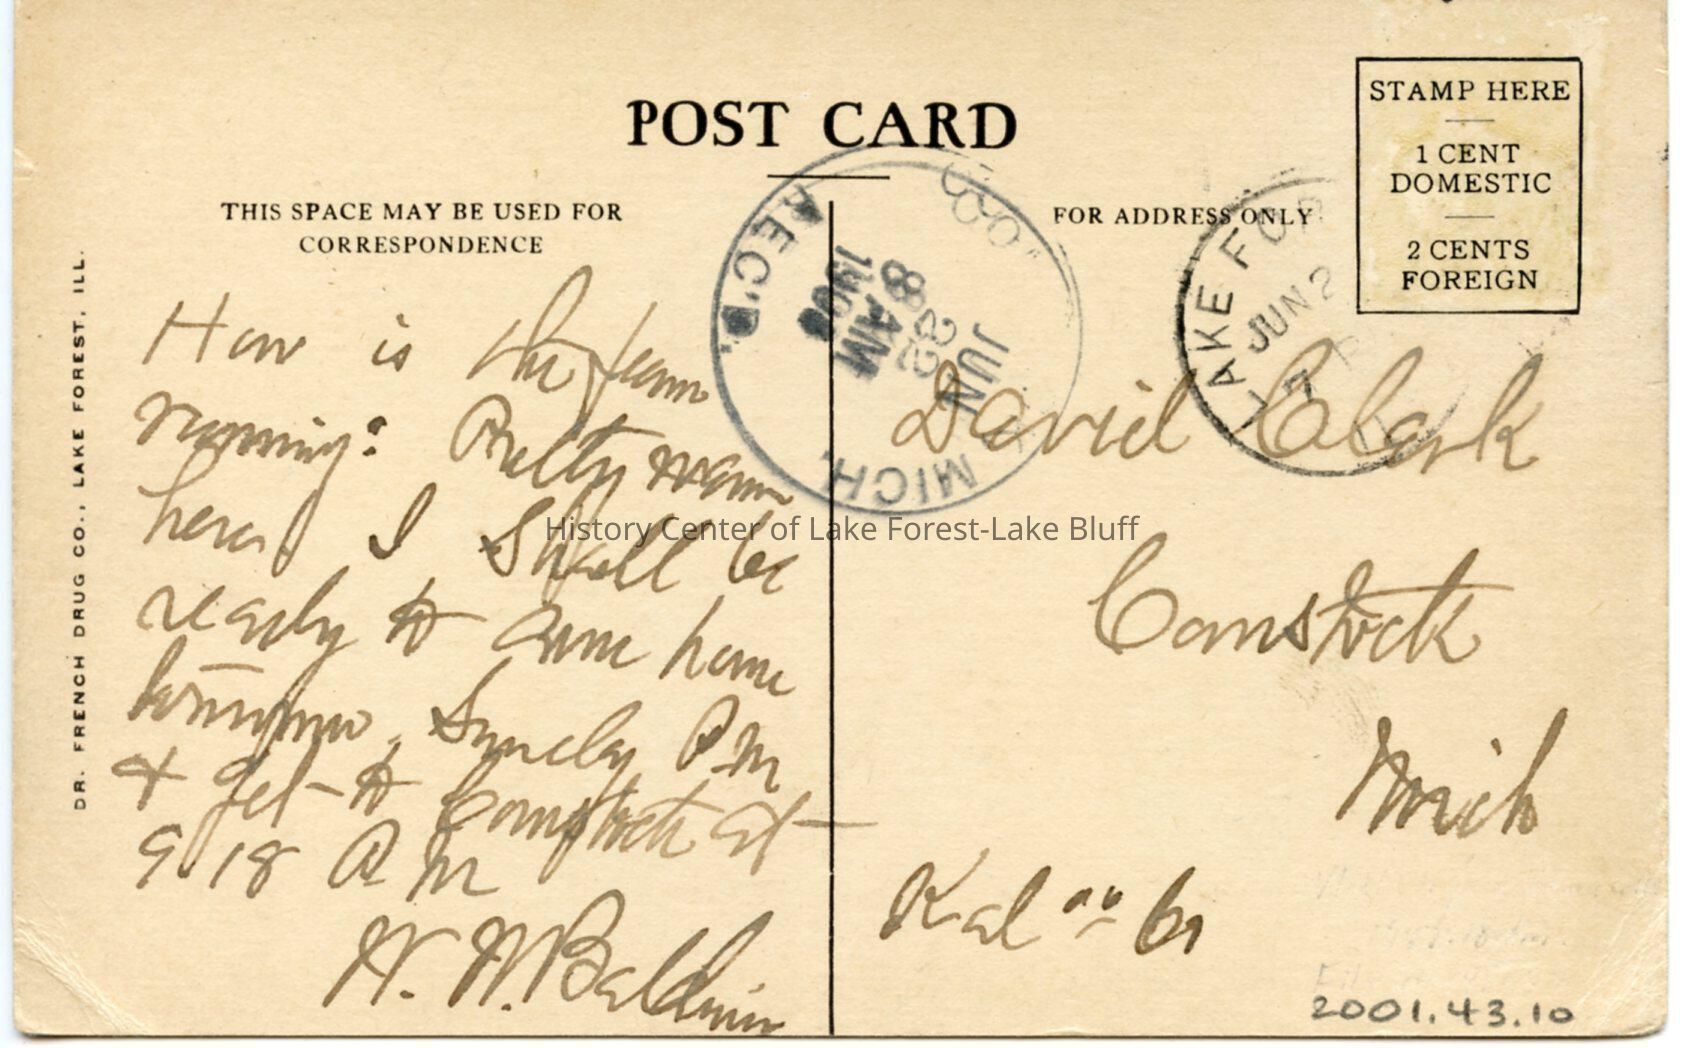 POST CARD
THIS SPACE MAY BE USED FOR
CORRESPONDENCE
FOR ADDRESS ONLY
STAMP HERE
1 CENT
DOMESTIC
2 CENTS
FOREIGN
DR. FRENCH DRUG CO., LAKE FOREST, ILL.
REC'D.
JUN
22
8 AM
MICH.
LAKE FOR
JUN 2
How is the farm
running? Pretty warm
here. I shall be
ready to come home
tomorrow, Sunday P.M
+ get to Comstock at
9 18 P M
H. W. Baldwin
David Clark
Comstock
Mich
Kal
2001.43.10
History Center of Lake Forest-Lake Bluff